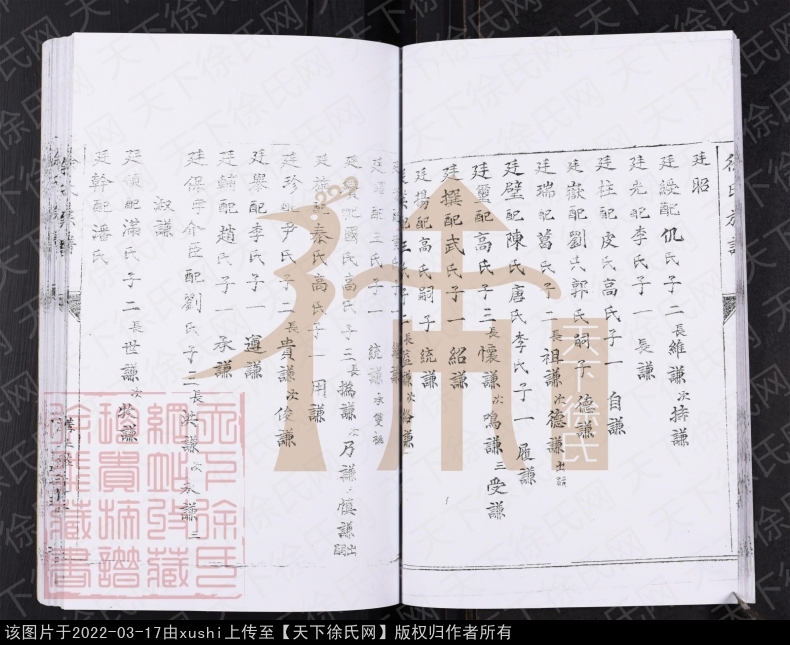 徐氏族譜
廷昭
廷綬配仉氏子二長維謙次持謙
廷光配李氏子一長謙
廷柱配皮氏高氏子一自謙
廷嶽配劉氏郭氏嗣子德謙
廷瑞配葛氏子二長祖謙次德謙出嗣
廷璧配陳氏唐氏李氏子一履謙
廷璽配高氏子三長懷謙次鳴謙三受謙
廷撰配武氏子一紹謙
廷揚配高氏嗣子統謙
配王氏子一統謙承雙祧
配國氏高氏子三長撝謙次乃謙慎謙出嗣
配秦氏高氏子一用謙
廷珍配尹氏子二長貴謙次俊謙
廷舉配李氏子一遜謙
廷翰配趙氏子一承謙
廷保字介臣配劉氏子三長英謙次永謙三
叔謙
配滿氏子二長世謙次謙
廷幹配潘氏
天下徐氏
天下徐氏网
该图片于2022-03-17由xushi上传至【天下徐氏网】版权归作者所有